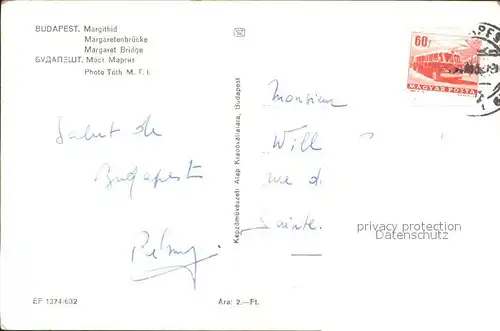 BUDAPEST. Margithíd
Margaretenbrücke
Margaret Bridge
БУДАПЕШТ. Мост Маргит
Photo Tóth M. T. I.
60f
MAGYAR POSTA
Salut de
Budapest
Rémy
Képzőművészeti Alap Kiadóvállalata, Budapest
Monsieur
Will
rue d
Sainte.
privacy protection
Datenschutz
EF 1374/632
Ára: 2.–Ft.